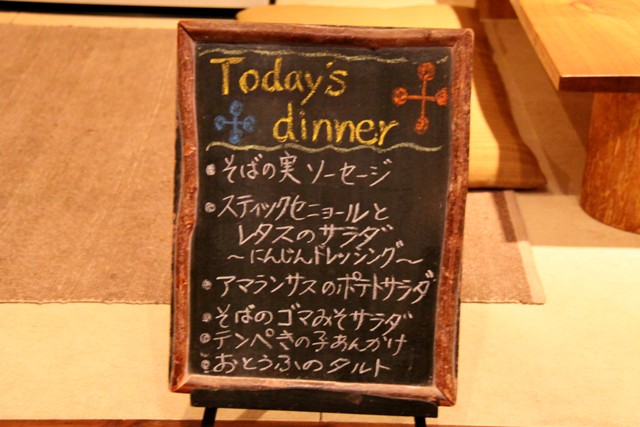 Today's
dinner
・そばの実 ソーセージ
・スティックセニョールと
レタスのサラダ
～にんじんドレッシング～
・アマランサスのポテトサラダ
・そばのゴマみそサラダ
・テンペきの子あんかけ
・おとうふのタルト